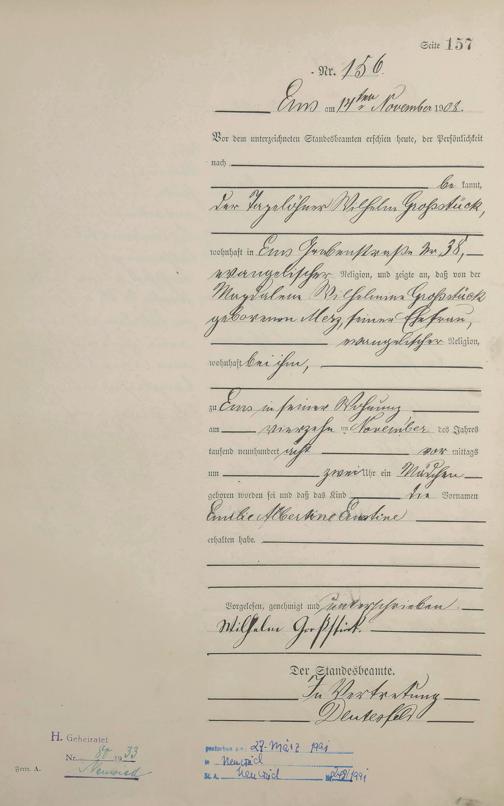 Seite 157
- Nr. 156
Ems am 14ten November 1908.
Vor dem unterzeichneten Standesbeamten erschien heute, der Persönlichkeit
nach
be kannt,
der Tagelöhner Wilhelm Großstück,
wohnhaft in Ems Grabenstraße Nr 38,
evangelischer Religion, und zeigte an, daß von der
Magdalena Wilhelmine Großstück
geborenen Merz, seiner Ehefrau,
evangelischer Religion,
wohnhaft bei ihm,
zu Ems in seiner Wohnung
am vierzehn ten November des Jahres
tausend neunhundert acht vor mittags
um zwei Uhr ein Mädchen
geboren worden sei und daß das Kind die Vornamen
Emilie Albertine Ernstine
erhalten habe.
Vorgelesen, genehmigt und unterschrieben
Wilhelm Großstück.
Der Standesbeamte.
In Vertretung
H. Geheiratet
Nr. 80 1933
Neuwied
Form. A.
gestorben am: 27. März 1991
in Neuwied
St. A. Neuwied Nr. /1991